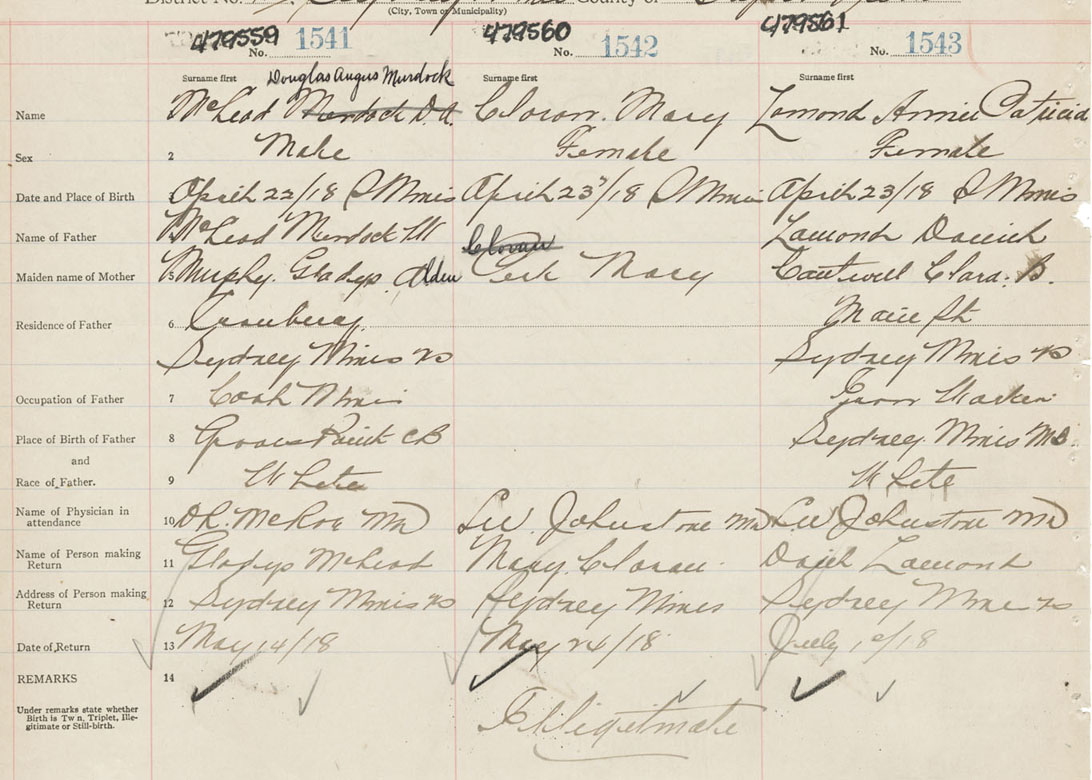 District No. County of
(City, Town or Municipality)
479559 479560 479561
No. 1541 No. 1542 No. 1543
Surname first Douglas Angus Murdock Surname first Surname first
Name McLeod Murdock D. A. Cloran. Mary Lamond Annie Patricia
Sex 2 Male Female Female
Date and Place of Birth April 22/18 S Mines April 23/18 S Mines April 23/18 S Mines
Name of Father 4 McLeod Murdock Cloran Lamond
Maiden name of Mother 5 Murphy. Gladys Alden Mary Cantwell Clara. B.
Residence of Father 6 Cranberry Main St
Sydney Mines NS Sydney Mines NS
Occupation of Father 7 Coal Miner
Place of Birth of Father 8 CB Sydney Mines
and
Race of Father. 9 White White
Name of Physician in
attendance 10 MD Johnstone MD Johnstone MD
Name of Person making
Return 11 Gladys McLeod Mary Cloran. Lamond
Address of Person making
Return 12 Sydney Mines NS Sydney Mines Sydney Mines NS
Date of Return 13 May 14/18 May 24/18 July /18
REMARKS 14
Under remarks state whether
Birth is Twin, Triplet, Ille-
gitimate or Still-birth.
Illegitimate